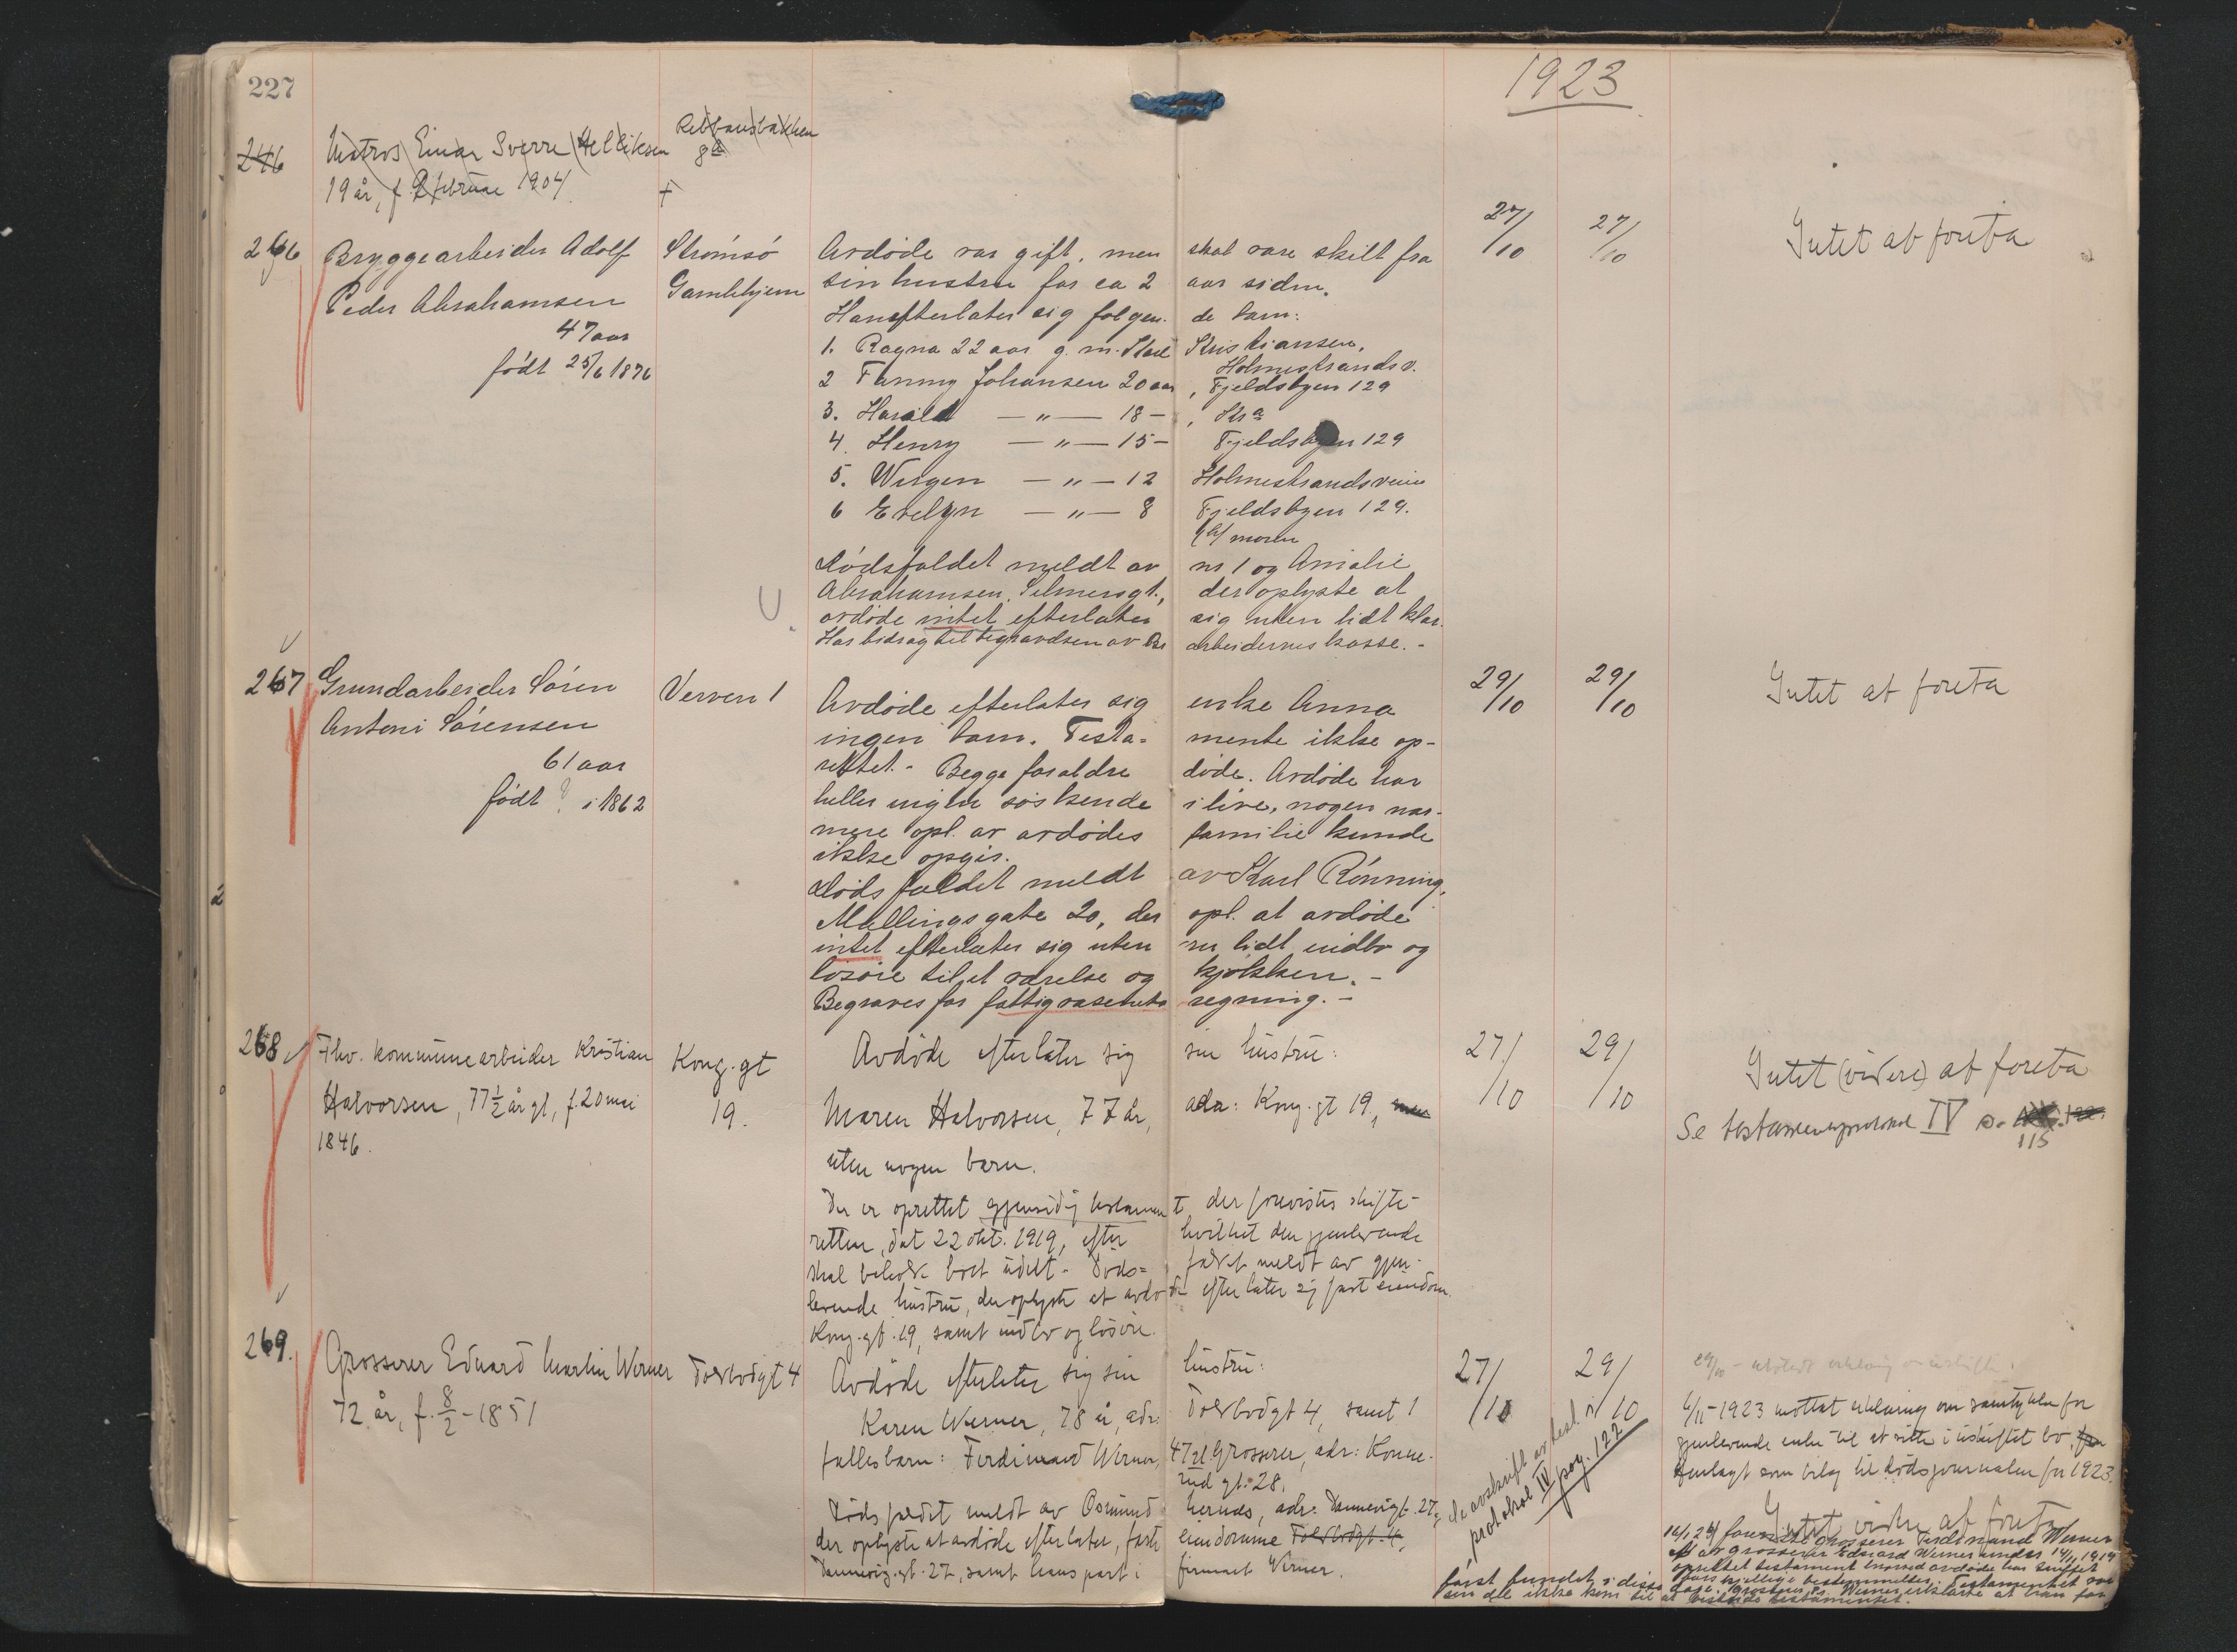 227
1923
246 Matros Einar Sverre Helliksen
19 år, f. 2 februar 1904
Rebbansbakken
8
+
266 Bryggearbeider Adolf
Peder Abrahamsen
47 aar
født 25/6 1876
Strømsø
Gamlehjem
Avdøde var gift, men skal være skilt fra
sin hustru for ca 2 aar siden.
Han efterlater sig følgende barn:
1. Ragna 22 aar g. m. Karl Kristiansen,
Holmestrandsv.
2 Fanny Johansen 20 aar, Fjeldsbyen 129
3. Harald — " — 18 — , Kra
4. Henry — " — 15 — Fjeldsbyen 129
5. Wergen — " — 12 Holmestrandsveien
6 Evelyn — " — 8 Fjeldsbyen 129.
moren
Dødsfaldet meldt av nr 1 og Amalie
Abrahamsen, Selmersgt., der oplyste at
avdøde intet efterlater sig uten lidt klær.
Har bidrag til begravelsen av arbeidernes kasse. -
27/10
27/10
Intet at foreta
267 Grundarbeider Søren
Antoni Sørensen
61 aar
født ? i 1862
Verven 1
Avdøde efterlater sig enke Anna
ingen barn. Testamente ikke op-
rettet. - Begge forældre døde. Avdøde har
heller ingen søskende i live, nogen nær-
mere opl. av avdødes familie kunde
ikke opgis.
Dødsfaldet meldt av Karl Rønning,
Møllingsgate 20, der opl. at avdøde
intet efterlater sig uten lidt indbo og
løsøre til et værelse og kjøkken. -
Begraves for fattigvæsenets regning. -
29/10
29/10
Intet at foreta
268 Fhv. kommunearbeider Kristian
Halvorsen, 77½ år gl, f. 20 mai
1846.
Kong. gt
19.
Avdøde efterlater sig sin hustru:
Maren Halvorsen, 77 år, adr: Kong. gt 19, men
uten nogen barn.
Der er oprettet gjensidig testament, der forevistes skifte-
retten, dat 22 okt. 1919, efter hvilket den gjenlevende
skal beholde boet udelt. - Døds- faldet meldt av gjen-
levende hustru, der oplyste at avdøde efterlater sig fast eiendom
Kong. gt. 19, samt indbo og løsøre.
27/10
29/10
Intet (videre) at foreta
Se testamentsprotokol IV s. 115
269. Grosserer Edvard Martin Werner
72 år, f. 8/2 - 1851
Toldbodgt 4
Avdøde efterlater sig sin hustru:
Karen Werner, 78 år, adr: Toldbodgt 4, samt 1
fællesbarn: Ferdinand Werner, 47 år Grosserer, adr: Konne-
rud gt. 28.
Dødsfaldet meldt av Osmund hernds, adr. Dannevigt. 27,
der oplyste at avdøde efterlater, faste eiendomme Toldbodgt. 4,
Dannevig. gt. 27, samt hans part i firmaet Werner.
27/10
29/10
Se avskrift av test. i
protokol IV pag. 122
29/10 - utstedt erklæring om uskifte.
6/11 - 1923 mottat erklæring om samtykke for
gjenlevende enke til at sitte i uskiftet bo,
henlagt som bilag til dødsjournalen for 1923.
Intet videre at foreta
16/1 24 foreviste grosserer Ferdinand Werner
et av grosserer Edvard Werner under 14/11 1919
oprettet testament hvorved avdøde har truffet
forskjellige bestemmelser. Testamentet var
først fundet i disse dage. Grosserer F. Werner erklærte at han for
sin del ikke kom til at bestride testamentet.